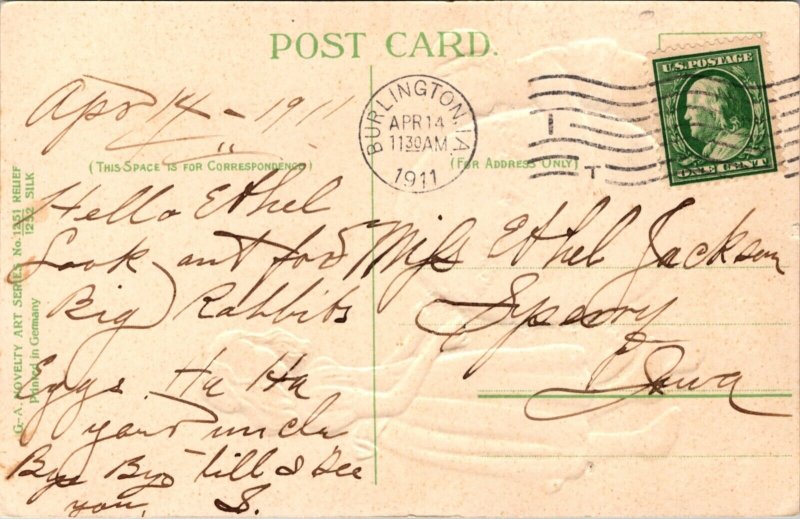 POST CARD.
Apr 14 - 1911
(THIS SPACE IS FOR CORRESPONDENCE)
Hello Ethel
Look out for
Big Rabbits
Eggs Ha Ha
your uncle
Bye Bye till I See
you. S.
BURLINGTON, IA
APR 14
1130AM
1911
U.S. POSTAGE
ONE CENT
(FOR ADDRESS ONLY)
Miss Ethel Jackson
Sperry
Iowa
G.-A. NOVELTY ART SERIES No. 1251 RELIEF
1252 SILK
Printed in Germany